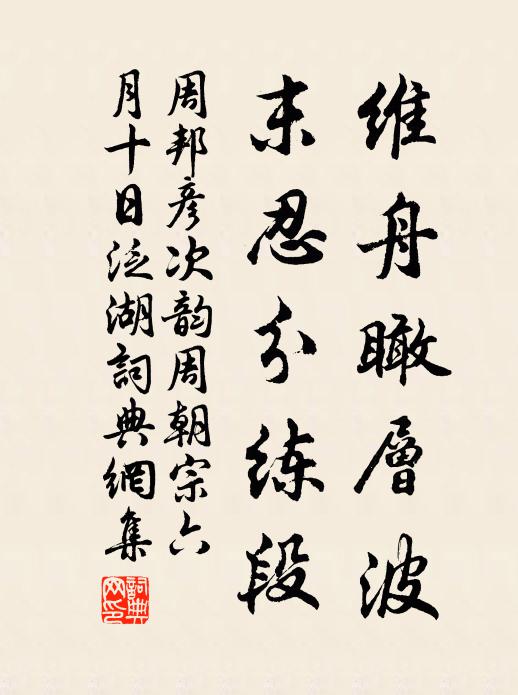 維舟瞰層波
未忍分练段
周邦彦次韵周朝宗六
月十日泛湖詞典網集
詞典网印